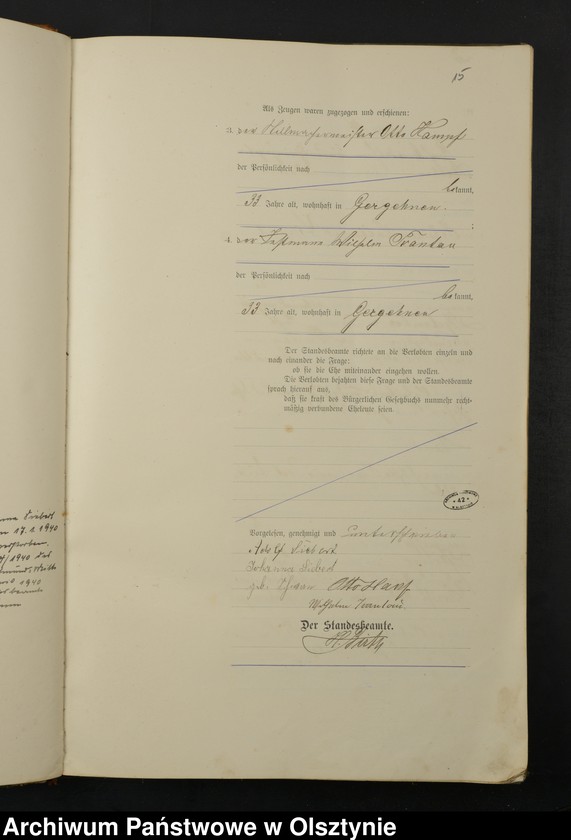 15
Als Zeugen waren zugezogen und erschienen:
3. der Stellmachermeister Otto Kampf
der Persönlichkeit nach
bekannt,
33 Jahre alt, wohnhaft in Gergehnen.
4. der Wilhelm
der Persönlichkeit nach
bekannt,
33 Jahre alt, wohnhaft in Gergehnen
Der Standesbeamte richtete an die Verlobten einzeln und
nach einander die Frage:
ob sie die Ehe miteinander eingehen wollen.
Die Verlobten bejahten diese Frage und der Standesbeamte
sprach hierauf aus,
daß sie kraft des Bürgerlichen Gesetzbuchs nunmehr recht-
mäßig verbundene Eheleute seien
42
Vorgelesen, genehmigt und unterschrieben
Adolf Siebert
Johanna Siebert
geb.
Wilhelm
Der Standesbeamte.
Siebert
17.1.1940
verstorben
/1940 des
1940
Archiwum Państwowe w Olsztynie